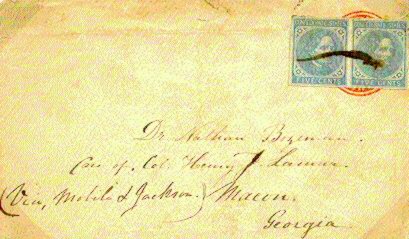 FIVE CENTS FIVE CENTS
Dr. Nathan Bozeman.
Care of, Col. Henry J Lamar.
(Via, Mobile & Jackson.) Macon.
Georgia.